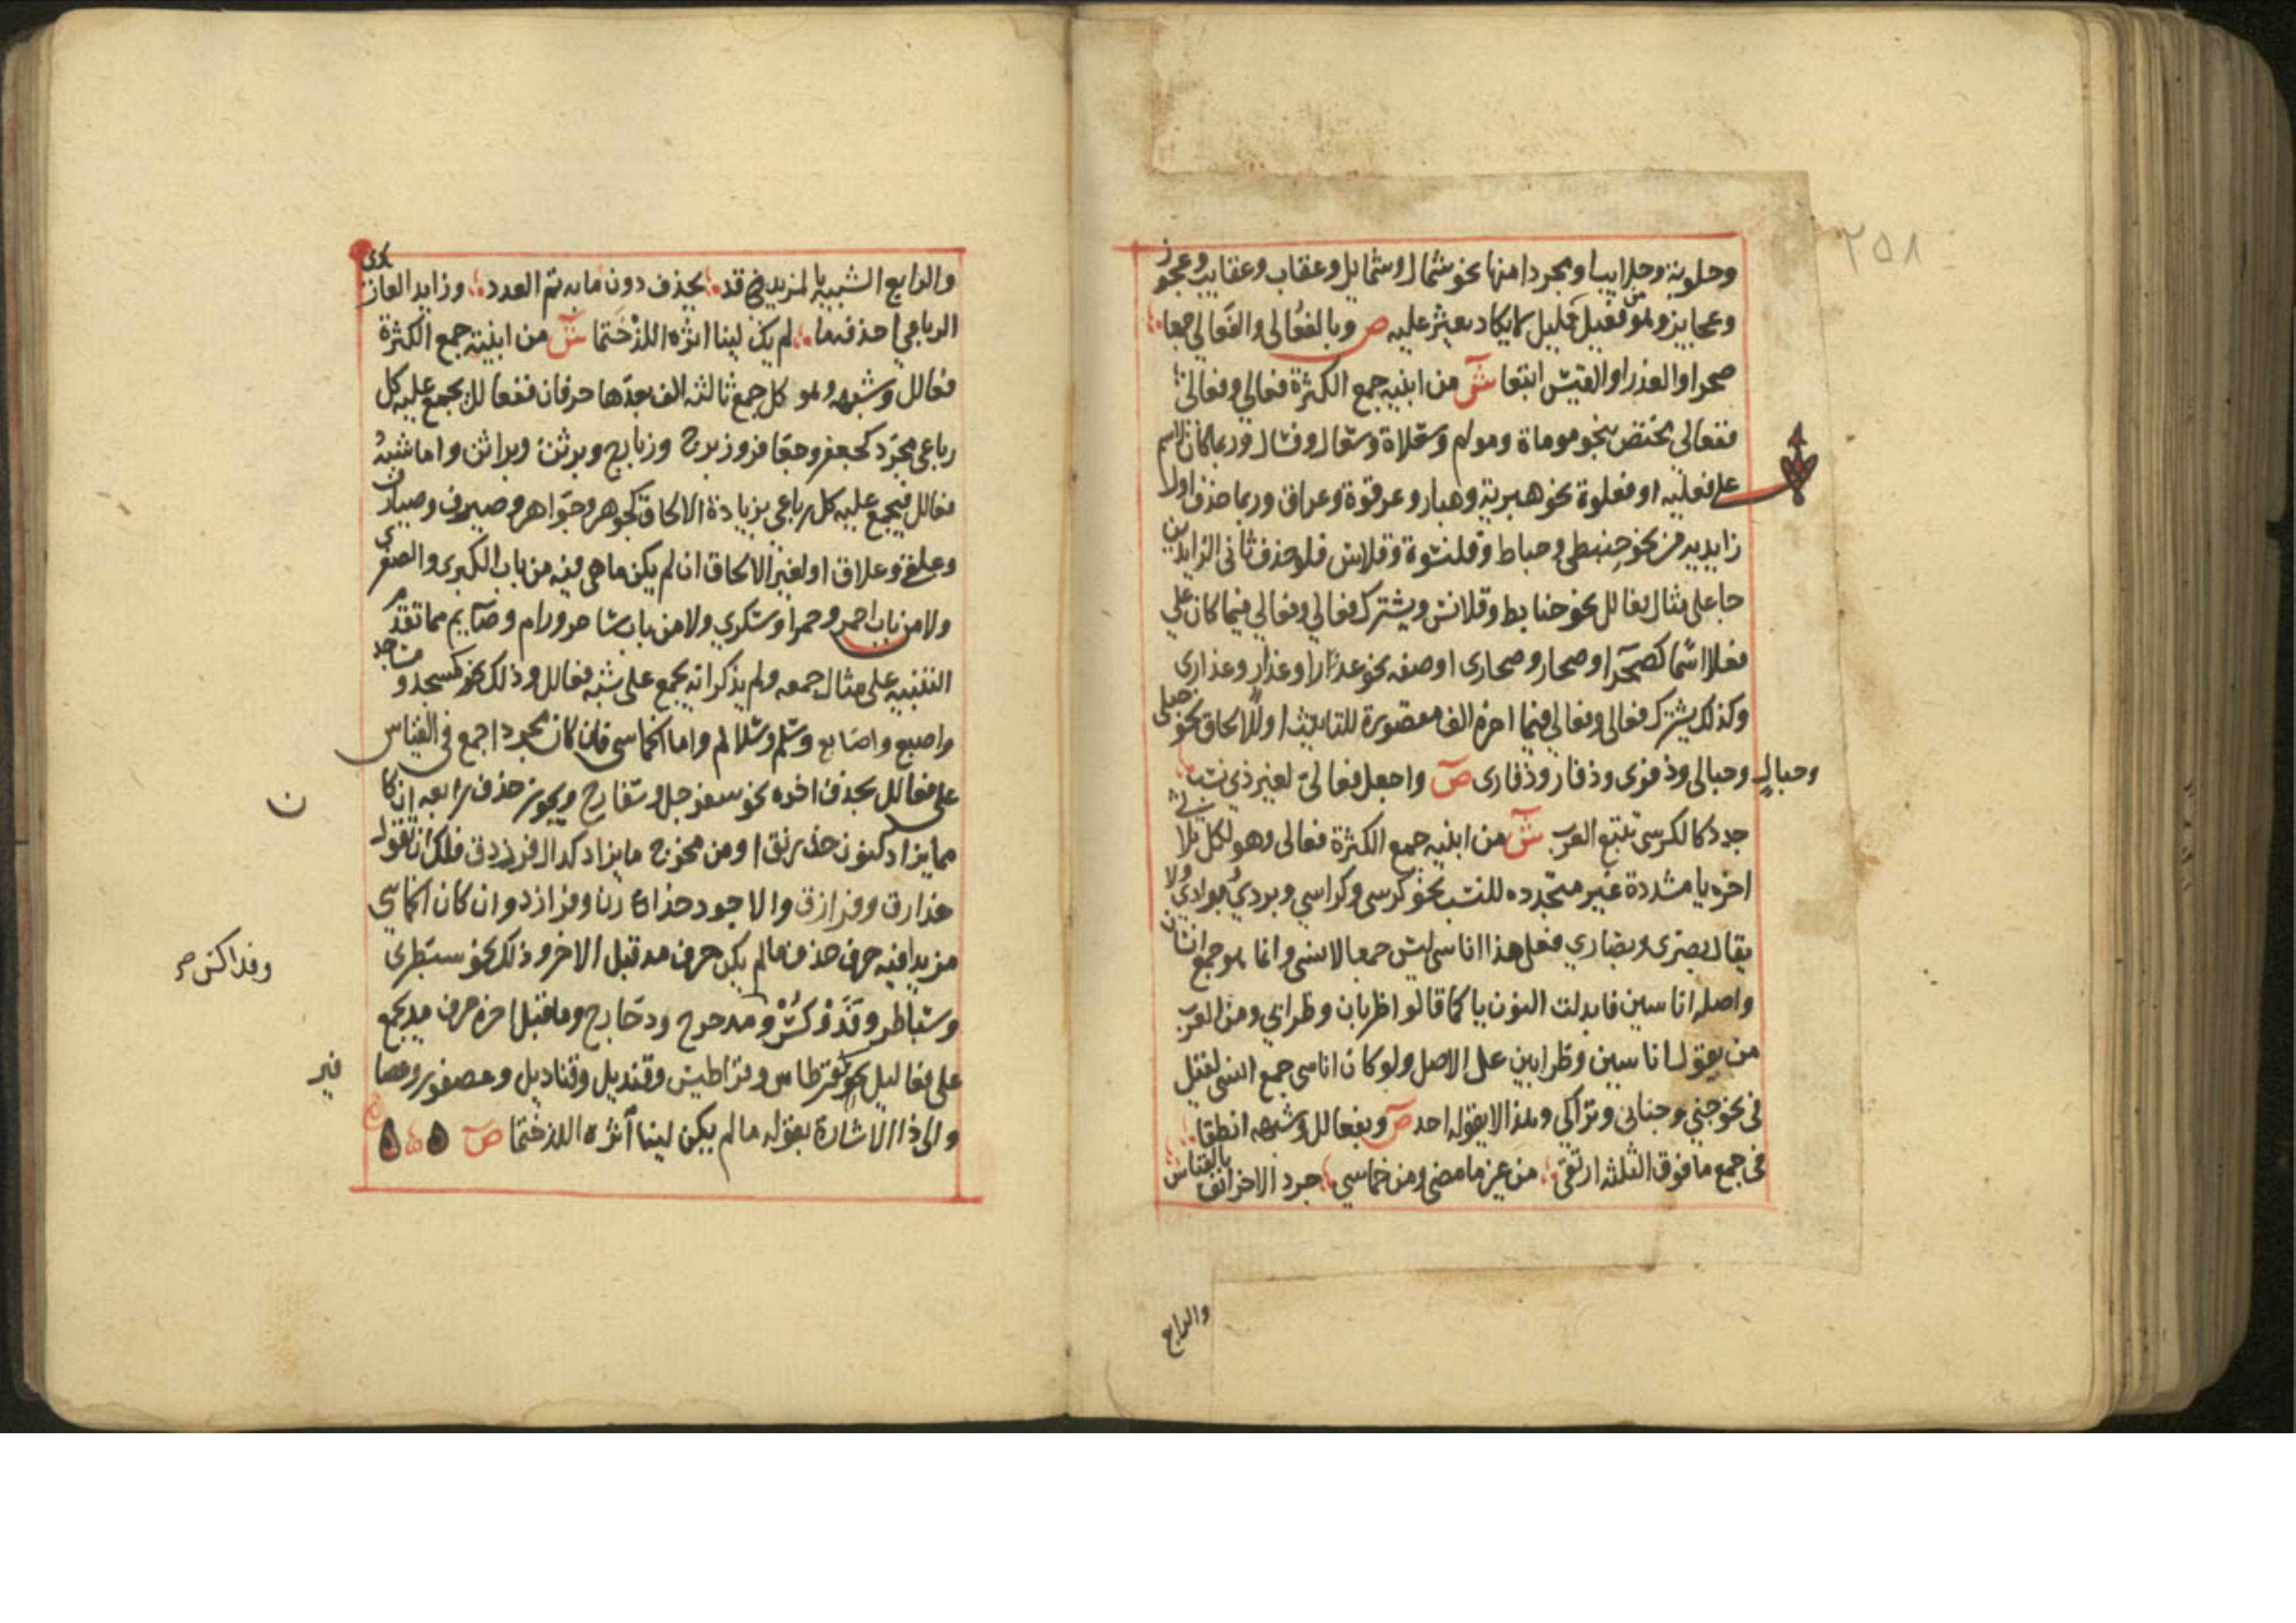 ٢٥٨
وحلوبة وحلايبا ومجردا منها نحو شمال وشمايل وعقاب وعقايب وعجوز
وعجايز وهو من فعيل قليل لا يكاد يعثر عليه ص وبالفعالي والفعالى جمعا
صحرا والعذرا والقيس اتبعا ش من ابنيه جمع الكثرة فعالي وفعالى
ففعالى يختص بنحو موماة وموام وسعلاة وسعال وربما كان لاسم
على فعليه او فعلوة نحو هبرية وهبار وعرقوة وعراق وربما حذف اولا
زايديه من نحو حبنطى وحباط وقلنسوة وقلاس فلو حذف ثانى الزايدين
جا على مثال فعالل نحو حنابط وقلانس ويشترك فعالي وفعالي فيما كان على
فعلا اسما كصحرا وصحار وصحارى او صفه نحو عذرا وعذار وعذارى
وكذلك يشترك فعالى وفعالي فيما اخره الف مقصورة للتانيث او للالحاق نحو حبلى
وحبالٍ وحبالى وذفرى وذفار وذفارى ص واجعل فعالىّ لغير ذي نسب
جدد كالكرسي تتبع العرب ش من ابنيه جمع الكثرة فعالى وهو لكل ثلاثي
اخره يا مشددة غير متجدده للنسب نحو كرسي وكراسي وبردي وبرادي ولا
يقال بصرى وبصاري فعلى هذا اناسى ليس جمعا لانسى وانما هو جمع انسان
واصله اناسين فابدلت النون يا كما قالوا ظربان وظرابي ومن العرب
من يقول اناسين وظرابين على الاصل ولو كان اناسى جمع انسى لقيل
فى نحو جني وجنانى وتراكي وهذا لا يقوله احد ص وبفعالل وشبهه انطقا
فى جمع ما فوق الثلثه ارتقى من غير ما مضى ومن خماسي جرد الاخر انف بالقياس
والرابع
والرابع الشبيه بالمزيد قد يحذف دون ما به تم العدد وزايد العادي
الرباعي احذفه ما لم يك لينا اثره اللذ ختما ش من ابنيه جمع الكثرة
فعالل وشبهه وهو كل جمع ثالثه الف بعدها حرفان ففعالل يجمع عليه كل
رباعي مجرد كجعفر وجعافر وزبرج وزبارج وبرثن وبراثن واما شبه
فعالل فيجمع عليه كل رباعي بزيادة الالحاق كجوهر وجواهر وصيرف وصيارف
وعلقى وعلاق او لغير الالحاق ان لم يكن ما هى فيه من باب الكبرى والصغرى
ولا من باب احمر وحمرا وسكري ولا من باب شاحر ورام وصايم مما تقدم
التنبيه على مثال جمعه ولم يذكر انه يجمع على شبه فعالل وذلك نحو مسجد ومساجد
واصبع واصابع وسلم وسلالم واما الخماسى فان كان مجردا جمع فى القياس
على فعالل بحذف اخره نحو سفرجل وسفارج ويجوز حذف رابعه ان كان
مما يزاد كنون خدرنق او من مخرج ما يزاد كدال فرزدق فلك ان تقول
خدارق وفرازق والاجود خدارن وفرازد وان كان الخماسي
مزيدا فيه حرف حذف ما لم يكن حرف مد قبل الاخر وذلك نحو سبطرى
وسباطر وفدوكس ومدحرج ودحارج وما قبل اخره حرف مد يجمع
وفداكس صح
على فعاليل نحو قرطاس وقراطيس وقنديل وقناديل وعصفور وعصافير
والى ذا الاشارة بقوله ما لم يكن لينا اثره اللذ ختما ص